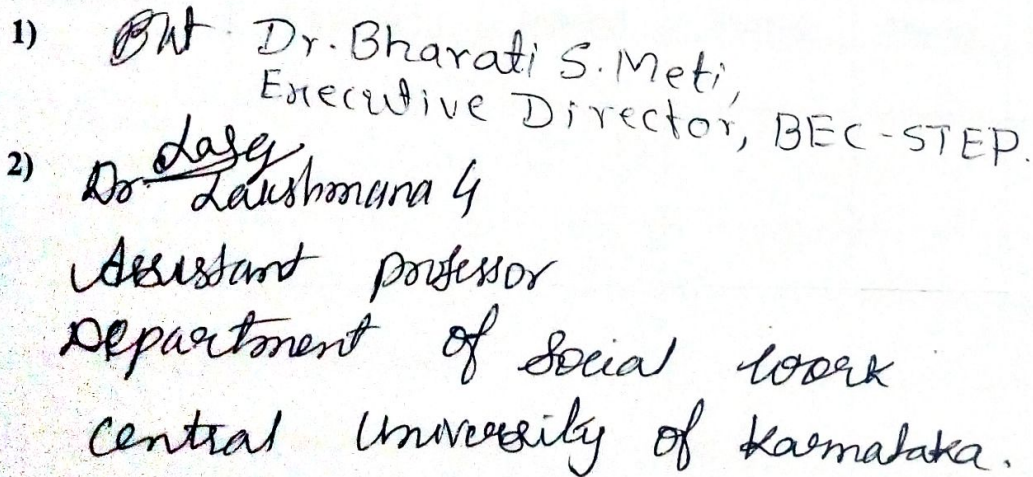 1) Dr. Bharati S. Meti,
Executive Director, BEC-STEP.
2) Dr Lakshmana G
Assistant professor
Department of Social work
Central University of Karnataka.